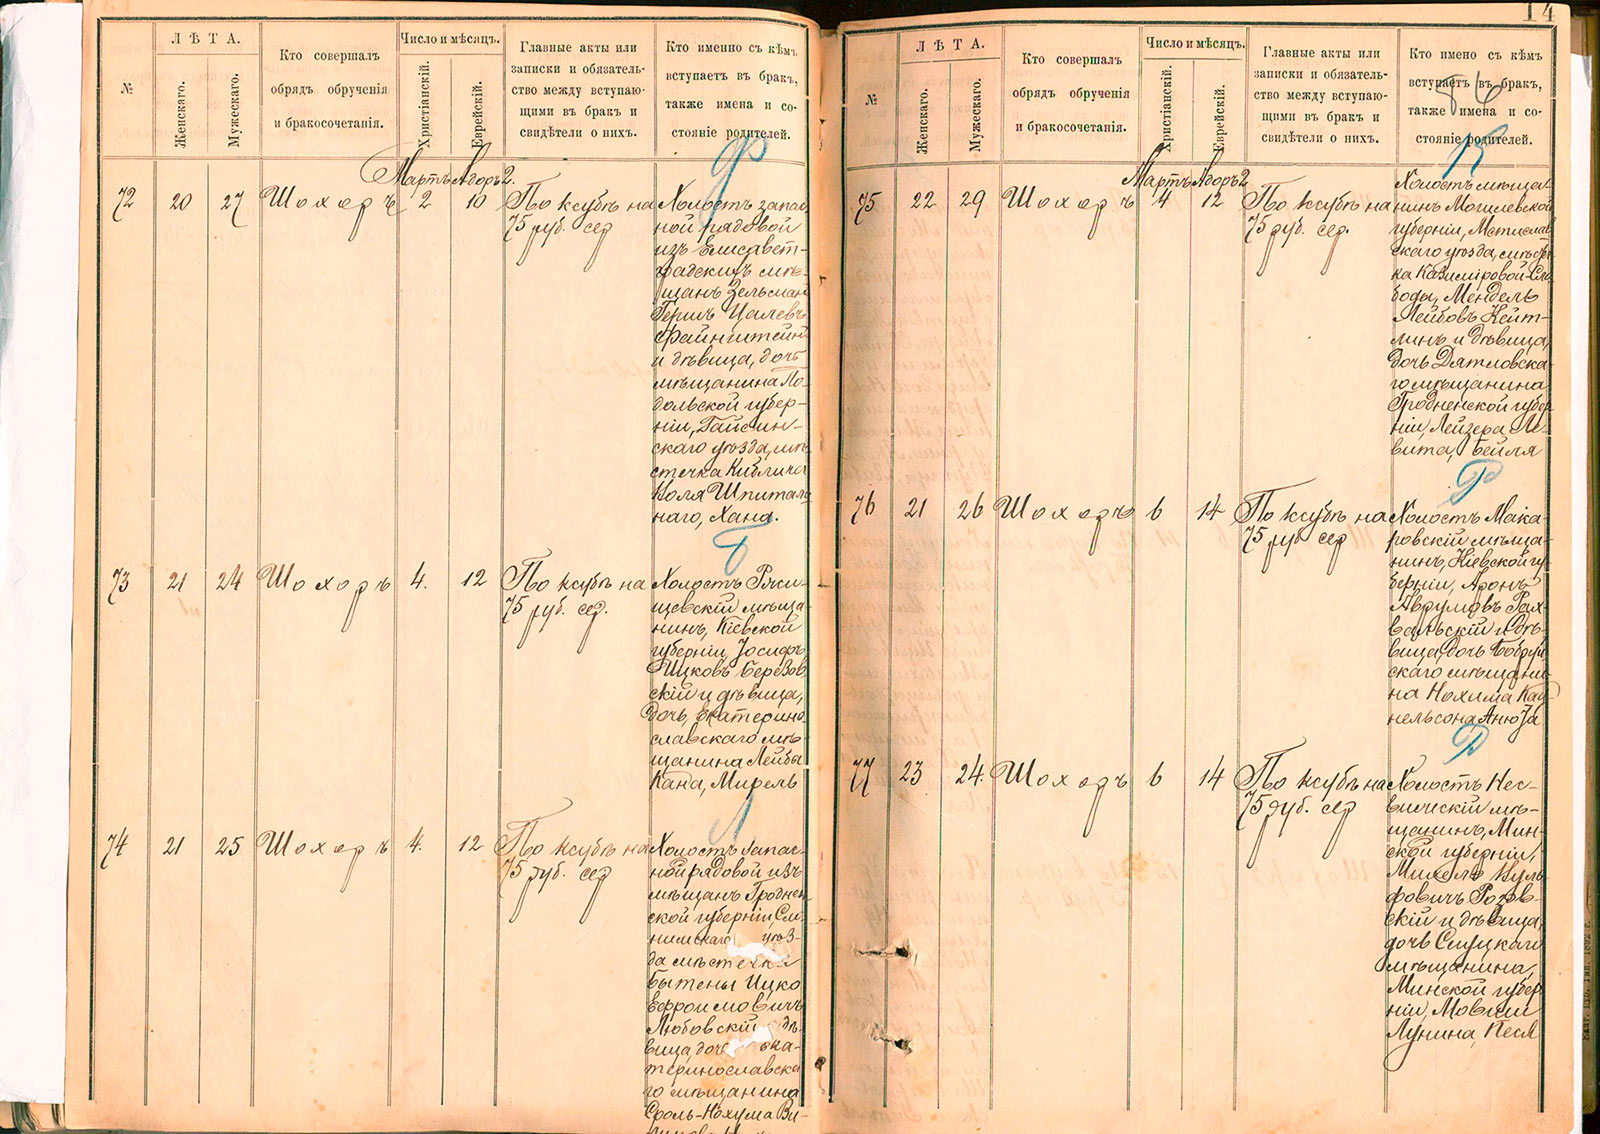 №
ЛѢТА.
Женскаго.
Мужескаго.
Кто совершалъ
обрядъ обрученія
и бракосочетанія.
Число и мѣсяцъ.
Христіанскій.
Еврейскій.
Главные акты или
записки и обязатель-
ство между вступаю-
щими въ бракъ и
свидѣтели о нихъ.
Кто именно съ кѣмъ
вступаетъ въ бракъ,
также имена и со-
стояніе родителей.
Ф
Мартъ Адоръ 2.
72 20 27 Шохоръ 2 10 По ксубѣ на
75 руб. сер
Холостъ запас
ной рядовой
изъ Елисавет-
градскихъ мѣ-
щанъ Зельман
Герш Цалевъ
Файнштейн
и дѣвица, дочь
мѣщанина По-
дольской губер-
ніи, Гайсин-
скаго уѣзда, мѣ
стечка Кублича
Коля Шпиталь
наго, Хана.
Б
73 21 24 Шохоръ 4. 12 По ксубѣ на
75 руб. сер.
Холостъ Ряси-
щевскій мѣща-
нинъ, Кіевской
губерніи, Іосифъ
Ицковъ Березов
скій и дѣвица,
дочь, Екатерино
славскаго мѣ-
щанина Лейбы
Кана, Мирель
Л
74 21 25 Шохоръ 4. 12 По ксубѣ на
75 руб. сер
Холостъ запас-
ной рядовой изъ
мѣщанъ Гроднен
ской губерніи Сло
нимскаго уѣз-
да мѣстечка
Бытены Ицко
Ефроимовичъ
Любовскій дѣ
вица, доч ека-
теринославска
го мѣщанина
Сроль-Нохума Ви-
14
№
ЛѢТА.
Женскаго.
Мужескаго.
Кто совершалъ
обрядъ обрученія
и бракосочетанія.
Число и мѣсяцъ.
Христіанскій.
Еврейскій.
Главные акты или
записки и обязатель-
ство между вступаю-
щими въ бракъ и
свидѣтели о нихъ.
Кто имено съ кѣмъ
вступаетъ въ бракъ,
также имена и со-
стояніе родителей.
К
Мартъ Адоръ 2
75 22 29 Шохоръ 4 12 По ксубѣ на
75 руб. сер.
Холостъ мѣща-
нинъ Могилевской
губерніи, Мстислав
скаго уѣзда, мѣстеч
ка Казимировой-Сло
боды, Мендель
Лейбовъ Кейт-
линъ и дѣвица,
дочь Дятловска-
го мѣщанина
Гродненской губер
ніи, Лейзера Ле-
вита, Бейля
Р
76 21 26 Шохоръ 6 14 По ксубѣ на
75 ру сер
Холостъ Мака-
ровскій мѣща-
нинъ, Кіевской гу
берніи, Аронъ
Аврумовъ Рах-
вальскій и дѣ-
вица, дочь Бобруй
скаго мѣщани-
на Нохима Кац
нельсона
Р
77 23 24. Шохоръ 6 14 По ксубѣ на
75 руб. сер
Холостъ Нес-
вичскій мѣ-
щанинъ, Мин-
ской губерніи,
Михель Вуль
фовичъ Розов-
скій и дѣвица,
дочь Слуцкаго
мѣщанина,
Минской губер
ніи, Мовши
Лунина, Песя